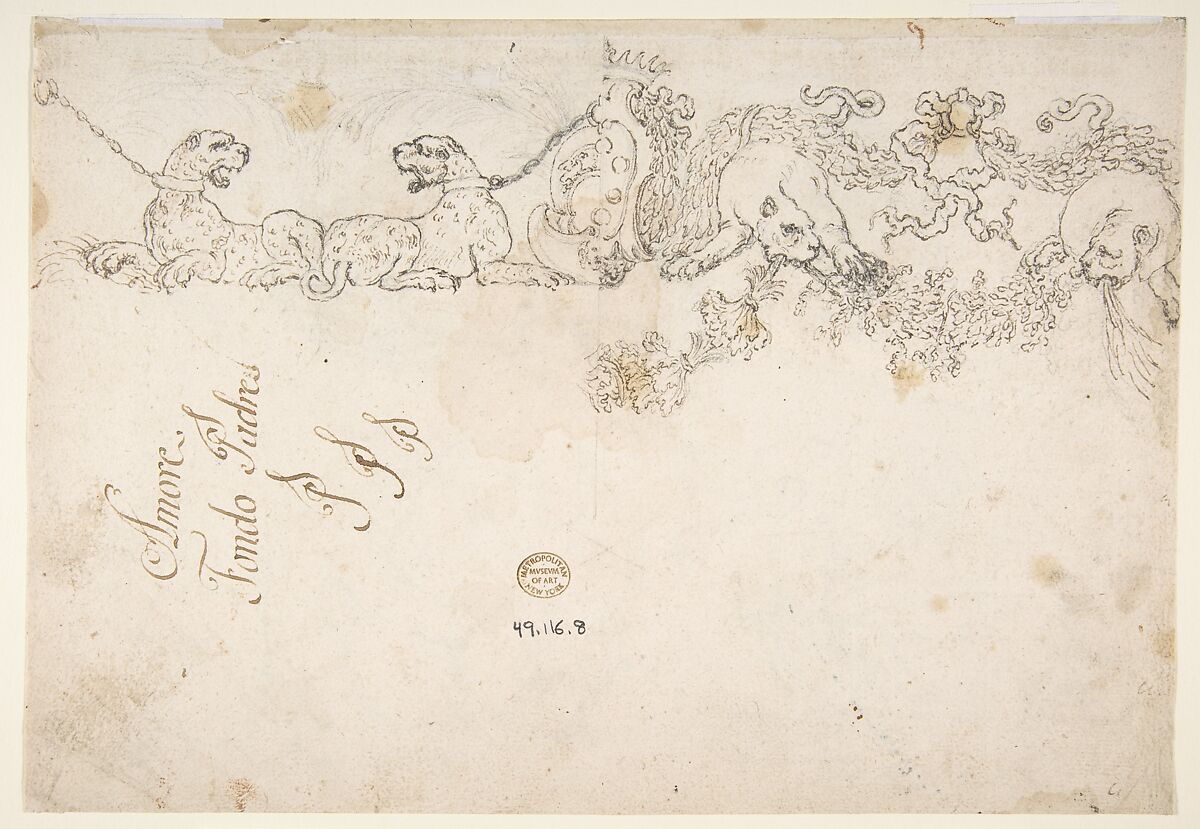 Amore
Fondo Padres
P P P
METROPOLITAN
MVSEVM
OF ART
NEW YORK
49.116.8